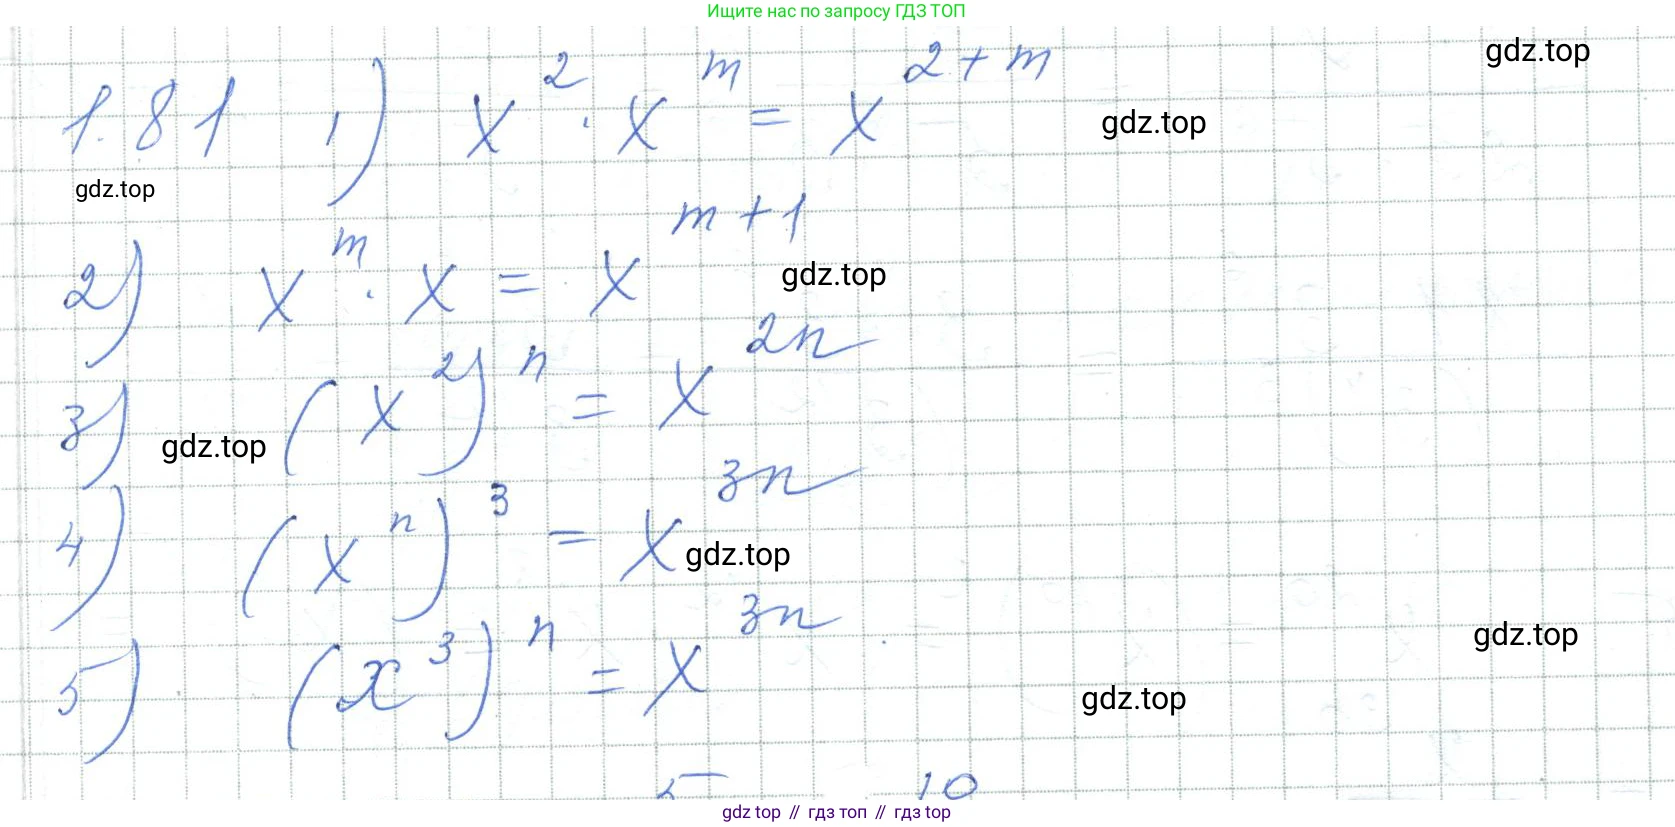 Ищите нас по запросу ГДЗ ТОП
gdz.top
1.81 1) x² · x^m = x^(2+m)
gdz.top
gdz.top
2) x^m · x = x^(m+1)
gdz.top
3) (x²)^n = x^(2n)
gdz.top
4) (x^n)³ = x^(3n)
gdz.top
5) (x³)^n = x^(3n)
gdz.top
gdz.top
5 10
gdz top // гдз топ // гдз top